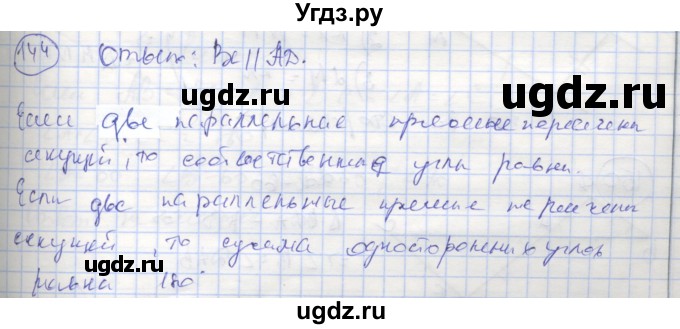 Угдз.ру
144 Ответ: BC || AD.
Если две параллельные прямые пересечены
секущей, то соответственные углы равны.
Если две параллельные прямые пересечены
секущей, то сумма односторонних углов
равна 180°
ugdz.ru
ugdz.ru
ugdz.ru
ugdz.ru
ugdz.ru
ugdz.ru
ugdz.ru